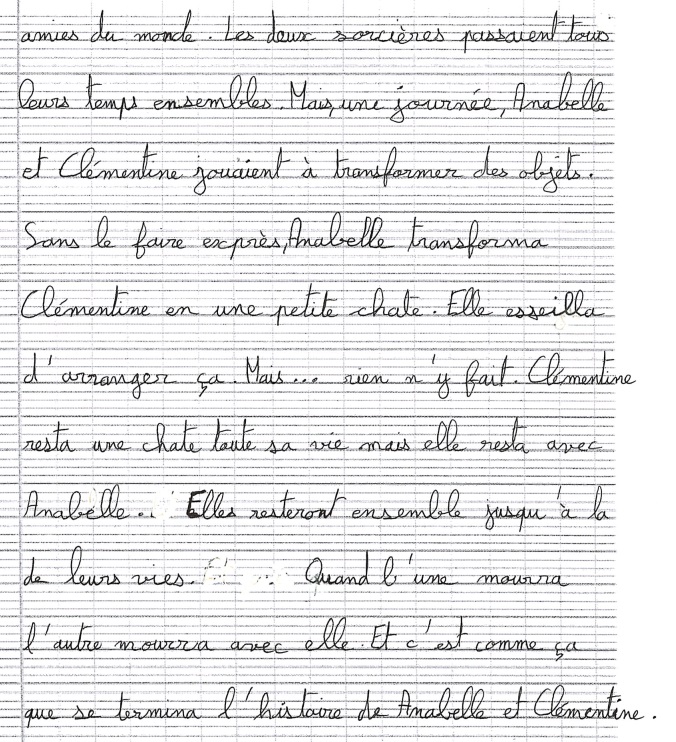 amies du monde. Les deux sorcières passaient tous
leurs temps ensembles. Mais, une journée, Anabelle
et Clémentine jouaient à transformer des objets.
Sans le faire exprès, Anabelle transforma
Clémentine en une petite chate. Elle esseilla
d'arranger ça. Mais... rien n'y fait. Clémentine
resta une chate toute sa vie mais elle resta avec
Anabelle.. Elles resteront ensemble jusqu'à la
de leurs vies. Quand l'une mourra
l'autre mourra avec elle. Et c'est comme ça
que se termina l'histoire de Anabelle et Clémentine.